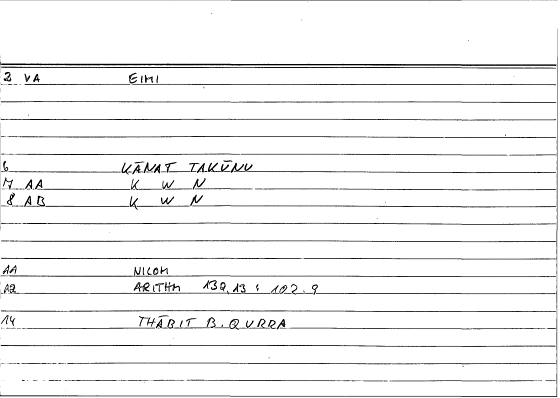 2 VA EIMI
6 KĀNAT TAKŪNU
7 AA K W N
8 AB K W N
AA NICOM
A2 ARITHM 139,13 : 102.9
14 THĀBIT B. QURRA